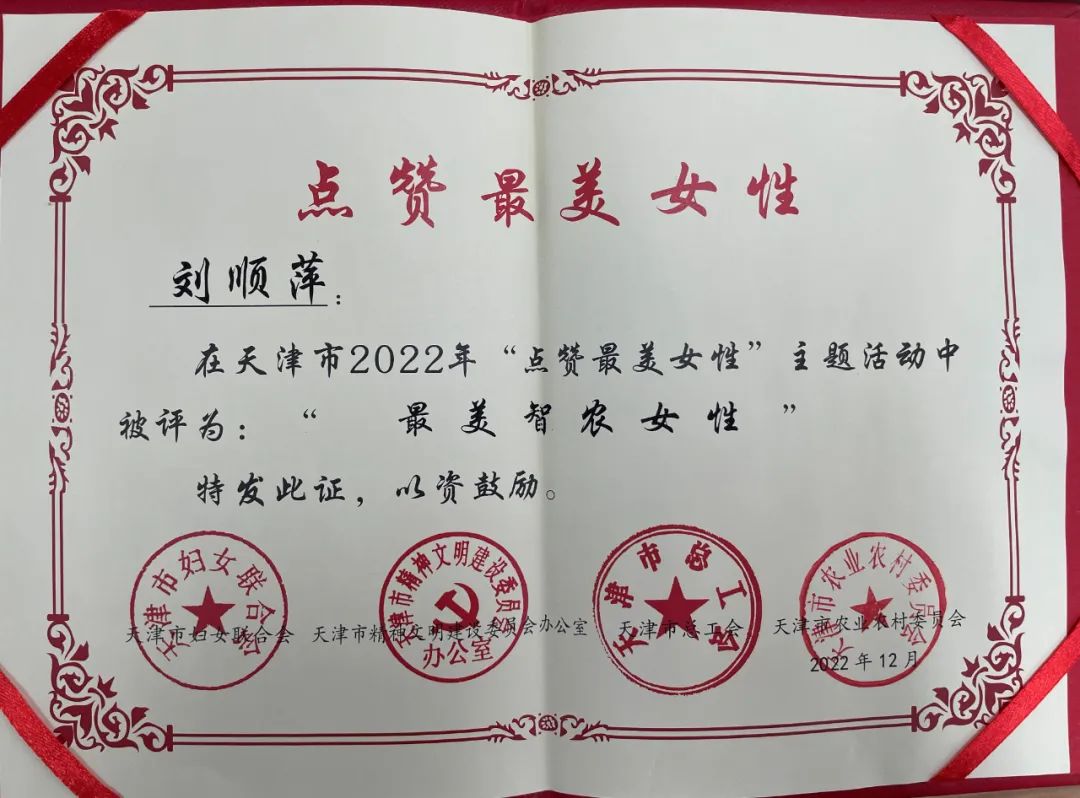 点赞最美女性
刘顺萍：
在天津市2022年“点赞最美女性”主题活动中
被评为：“最美智农女性”
特发此证，以资鼓励。
天津市妇女联合会
天津市精神文明建设委员会办公室
天津市总工会
天津市农业农村委员会
天津市妇女联合会 天津市精神文明建设委员会办公室 天津市总工会 天津市农业农村委员会
2022年12月